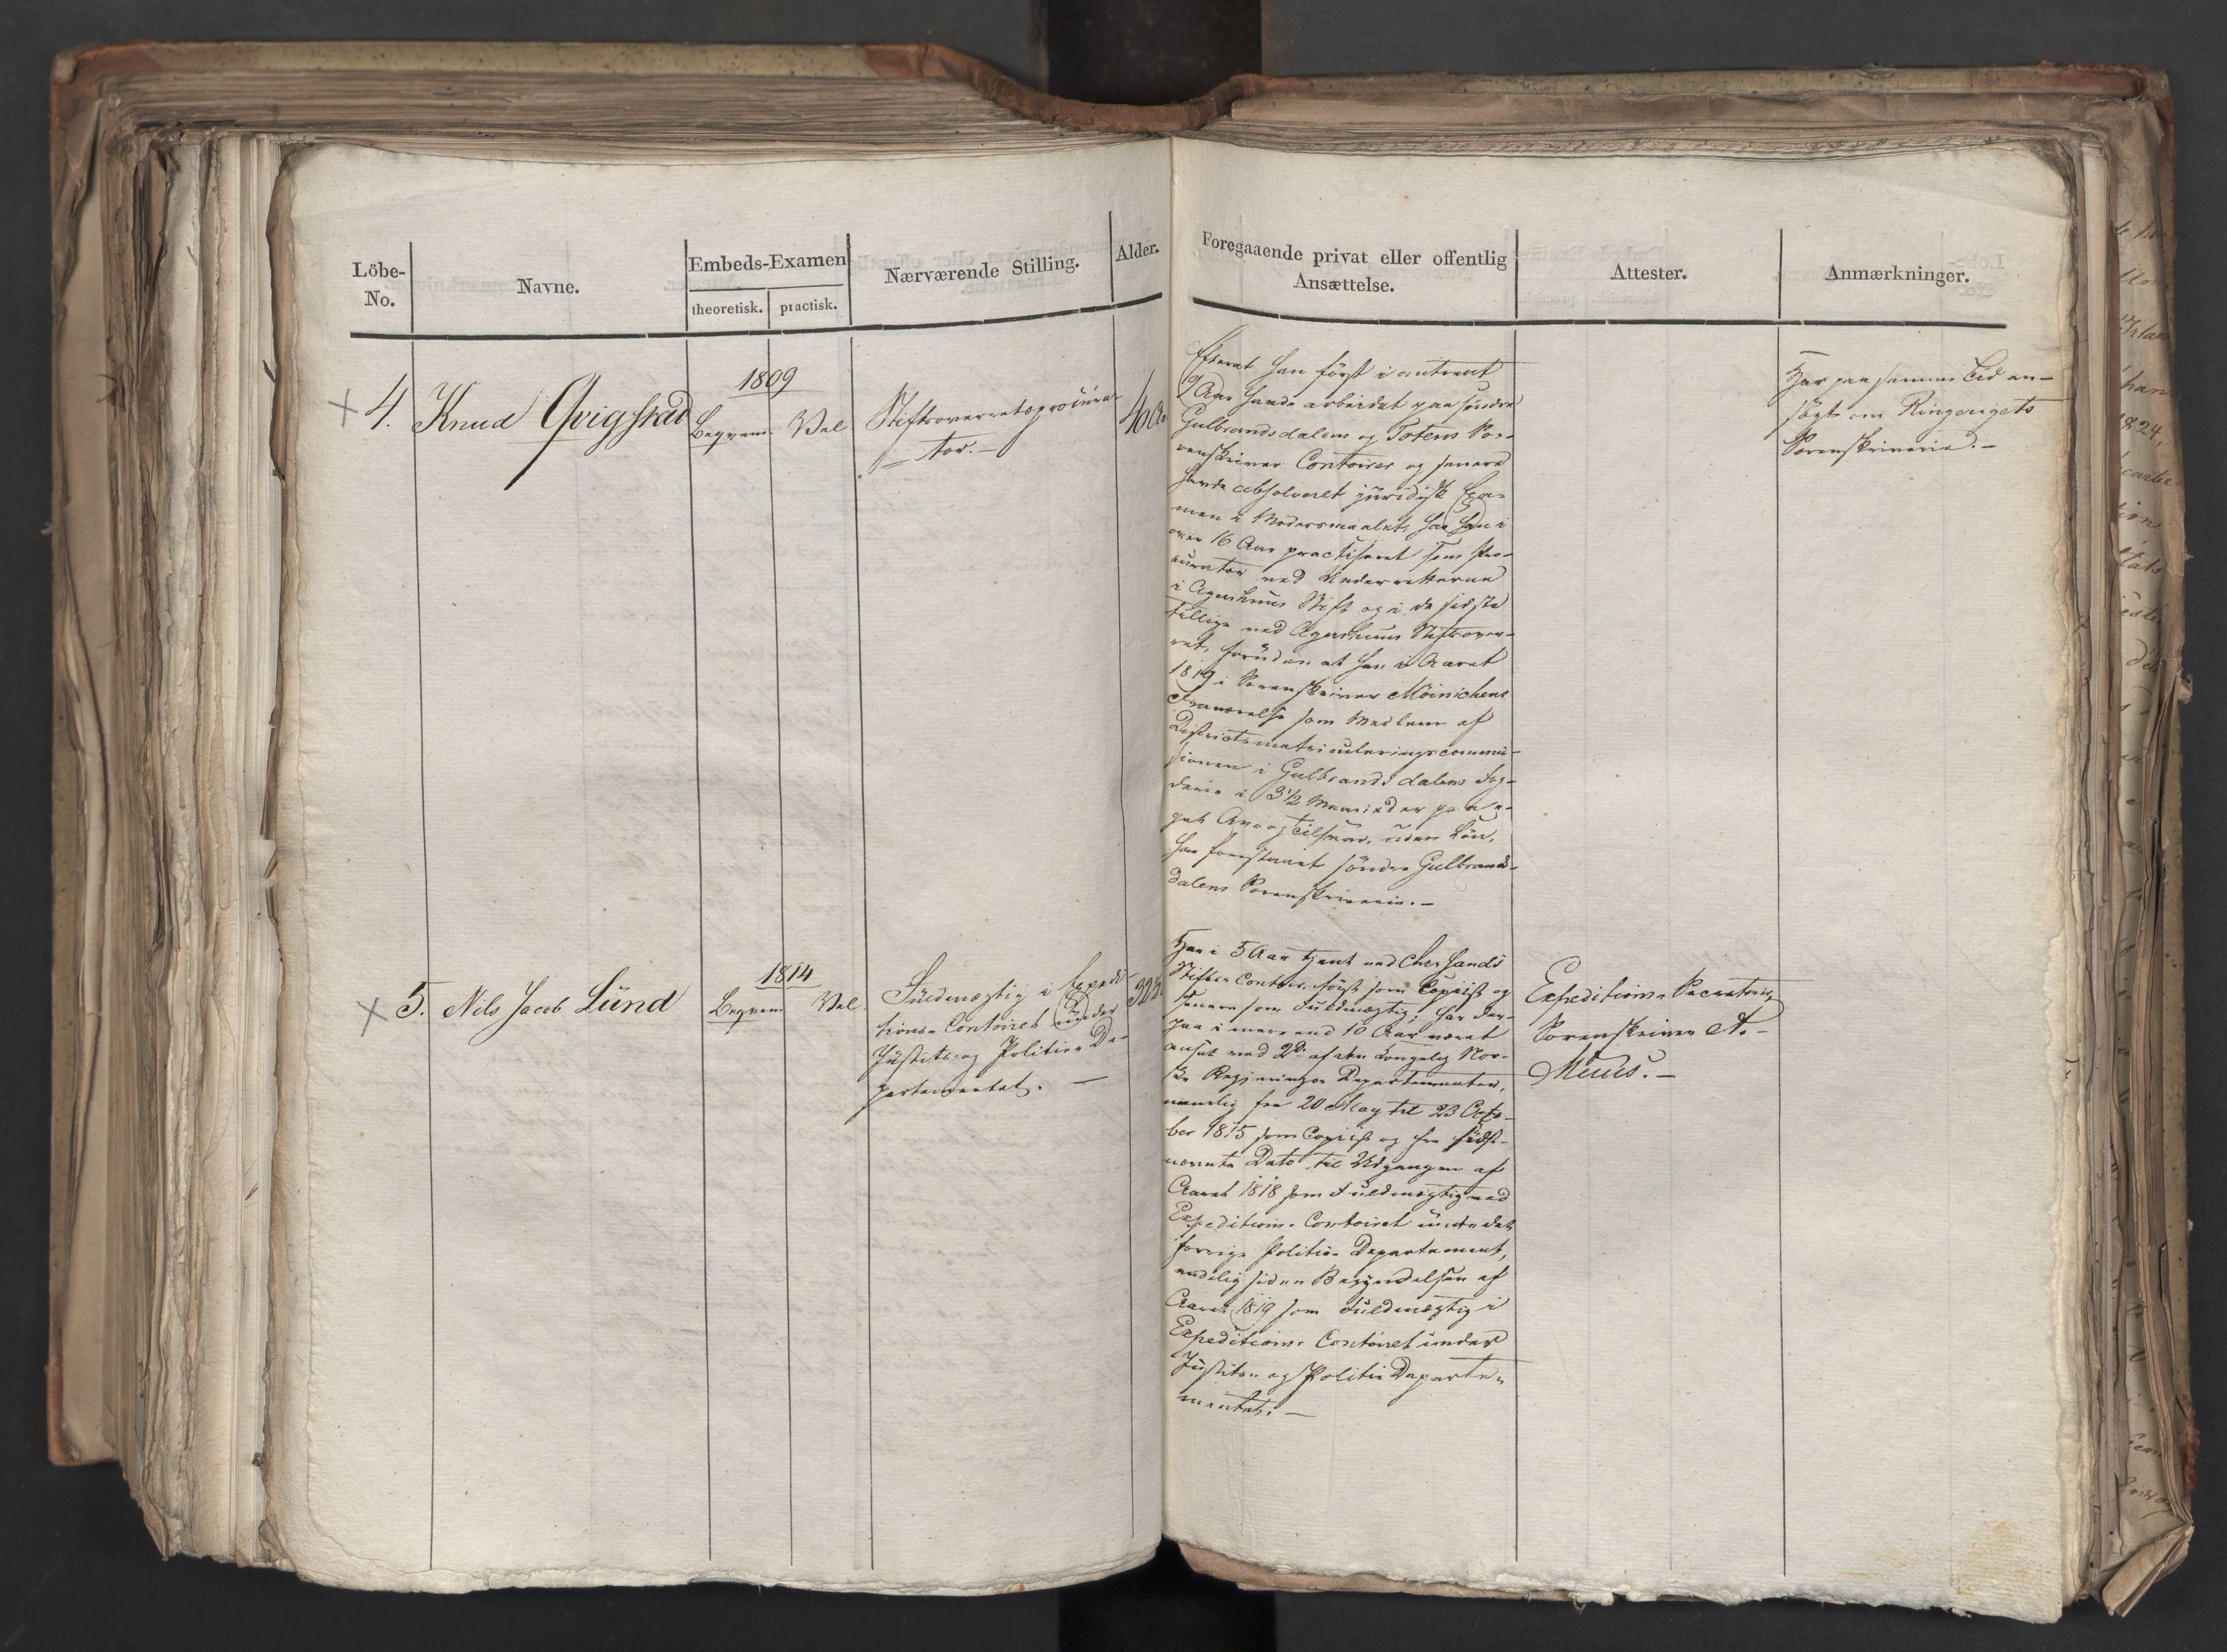 Löbe-
No.
Navne.
Embeds-Examen
theoretisk. practisk.
Nærværende Stilling.
Alder.
Foregaaende privat eller offentlig
Ansættelse.
Attester.
Anmærkninger.
4. Knud Qvigstad
1809
Beqvem. Vel
Stiftsoverretsprocura-
tor. –
40 Aar
Efterat han först i omtrent
9 Aar havde arbeidet paa söndre
Gulbrandsdalens og Totens So-
renskriver Contoirer og senere
havde absolveret juridisk Exa-
men i Modersmaalet, har han i
over 16 Aar practiseret som Pro-
curator ved Underretterne
i Agershuus Stift og i de sidste
tillige ved Agershuus Stiftsover-
ret, foruden at han i Aaret
1819 i Sorenskriver Möinichens
Fraværelse som Medlem af
Districtsmatriculeringscommis-
sionen i Gulbrandsdalens Fog-
derie i 3 1/2 Maaneder paa e-
get Ansvar, uden Lön,
har forestaaet söndre Gulbrands-
dalens Sorenskriverie. –
Har paa samme Tid an-
sögt om Ringerigets
Sorenskriverie. –
5. Nils Jacob Lund
1814
Beqvem Vel
Fuldmægtig i Expedi-
tions-Contoiret under
Justits- og Politie-De-
partementet. –
32
Har i 5 Aar tjent ved Chrsands
Stifts-Contoir först som Copiist og
senere som Fuldmægtig; har der-
paa i mere end 10 Aar været
ansat ved 2de af den Kongelig Nor-
ske Regjerings Departementer,
nemlig fra 20 May til 23 Octo-
ber 1815 som Copiist og fra sidst-
nævnte Dato til Udgangen af
Aaret 1818 som Fuldmægtig ved
Expeditions-Contoiret under det
forrige Politie-Departement,
endelig siden Begyndelsen af
Aaret 1819 som Fuldmægtig i
Expeditions-Contoiret under
Justits- og Politie Departe-
mentet. –
Expeditions-Secretair,
Sorenskriver A.
Muus. –